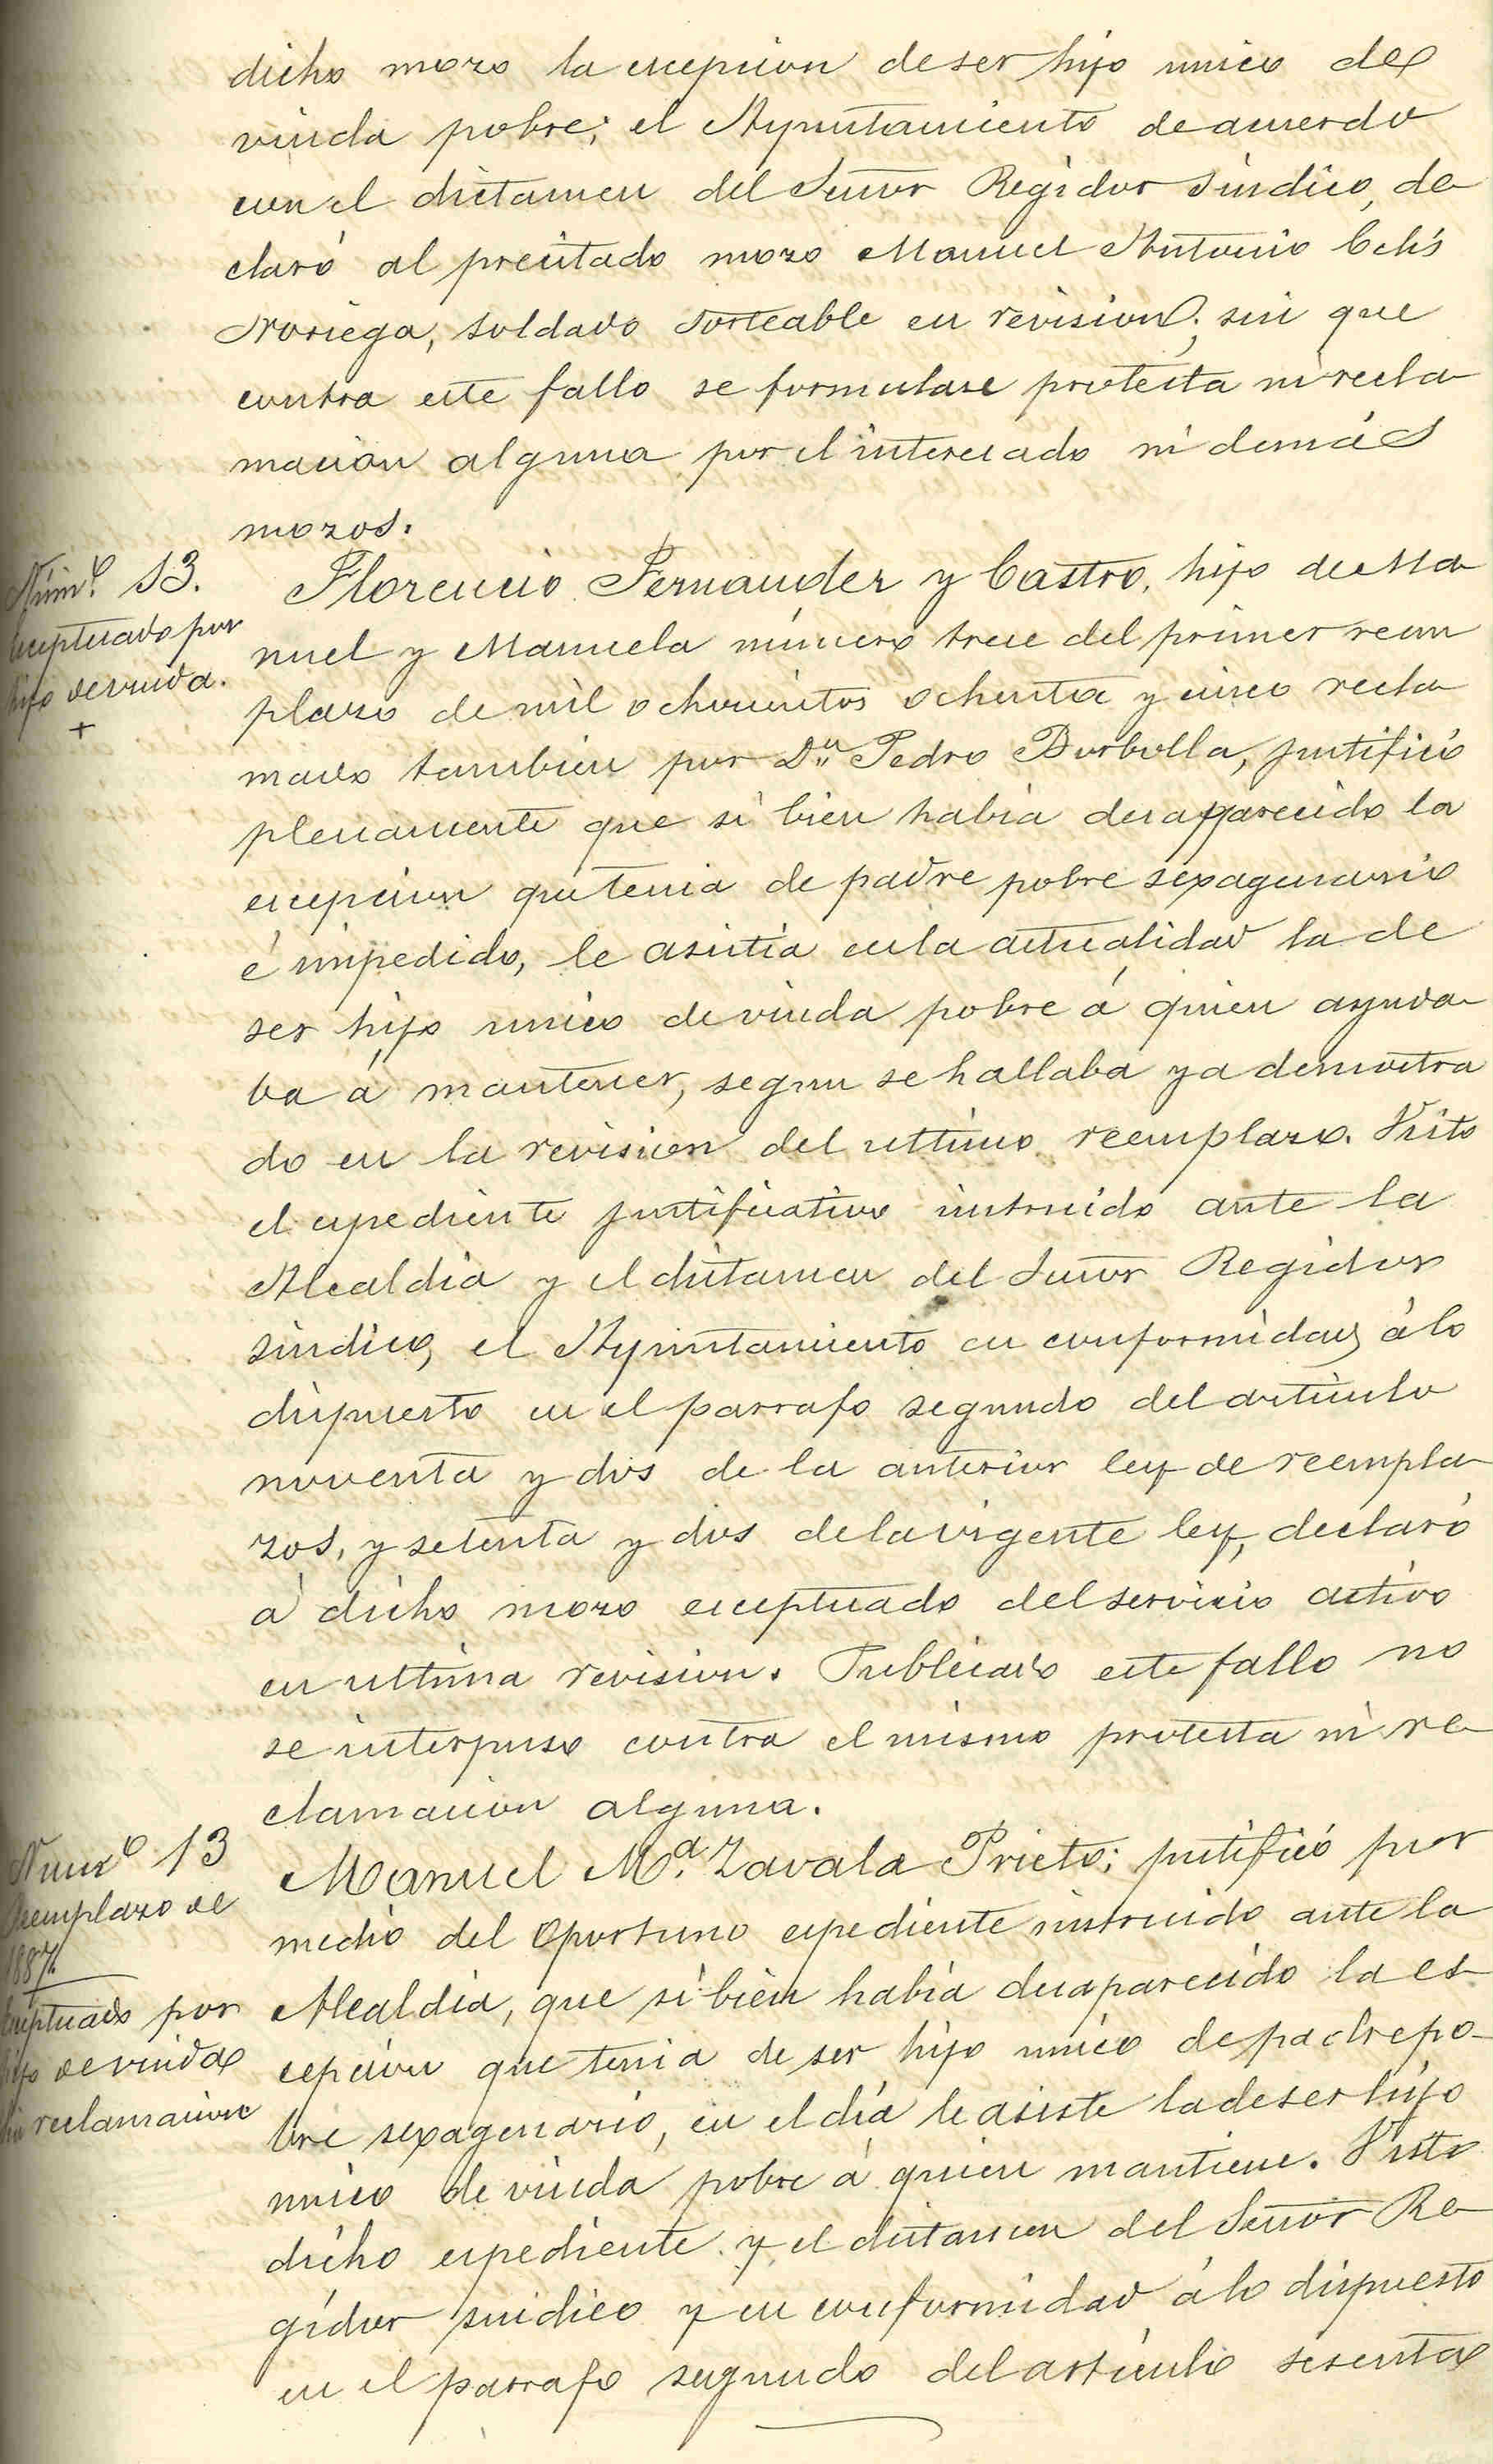 dicho mozo la escepcion de ser hijo unico de
viuda pobre; el Ayuntamiento de acuerdo
con el dictamen del Señor Regidor Sindico, de
claró al precitado mozo Manuel Antonio Celis
Noriega, soldado sorteable en revision; sin que
contra este fallo se formulase protesta ni recla
macion alguna por el interesado ni demás
mozos.
Núm.o 13.
Eceptuado por
hijo de viuda.
+
Florencio Fernandez y Castro, hijo de Ma
nuel y Manuela número trece del primer reem
plazo de mil ochocientos ochenta y cinco recla
mado tambien por Dn Pedro Borbolla, justificó
plenamente que si bien habia desapparecido la
escepcion que tenia de padre pobre sexagenario
é impedido, le asistia en la actualidad la de
ser hijo unico de viuda pobre á quien ayuda
ba á mantener, segun se hallaba ya demostra
do en la revision del ultimo reemplazo. Visto
el espediente justificativo instruido ante la
Alcaldia y el dictamen del Señor Regidor
sindico, el Ayuntamiento en conformidad á lo
dispuesto en el parrafo segundo del articulo
noventa y dos de la anterior ley de reempla
zos, y setenta y dos de la vigente ley, declaró
á dicho mozo esceptuado del servicio activo
en ultima revision. Publicado este fallo no
se interpuso contra el mismo protesta ni re
clamacion alguna.
Numo 13
Reemplazo de
1887.
Eceptuado por
hijo de viuda
sin reclamacion
Manuel Ma. Zavala Prieto; justificó por
medio del oportuno espediente instruido ante la
Alcaldia, que si bien habia desaparecido la es
cepcion que tenia de ser hijo unico de padre po-
bre sexagenario, en el día le asiste la de ser hijo
unico de viuda pobre á quien mantiene. Visto
dicho espediente y el dictamen del Señor Re
gidor sindico y en conformidad á lo dispuesto
en el parrafo segundo del articulo sesenta